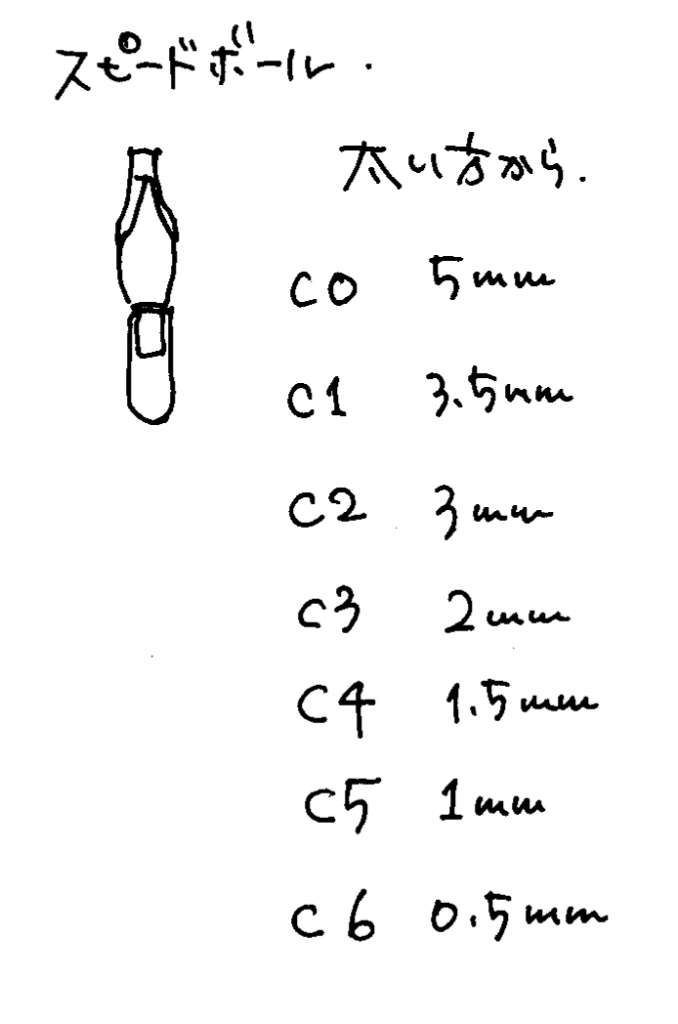 スピードボール.
太い方から.
C0 5mm
C1 3.5mm
C2 3mm
C3 2mm
C4 1.5mm
C5 1mm
C6 0.5mm